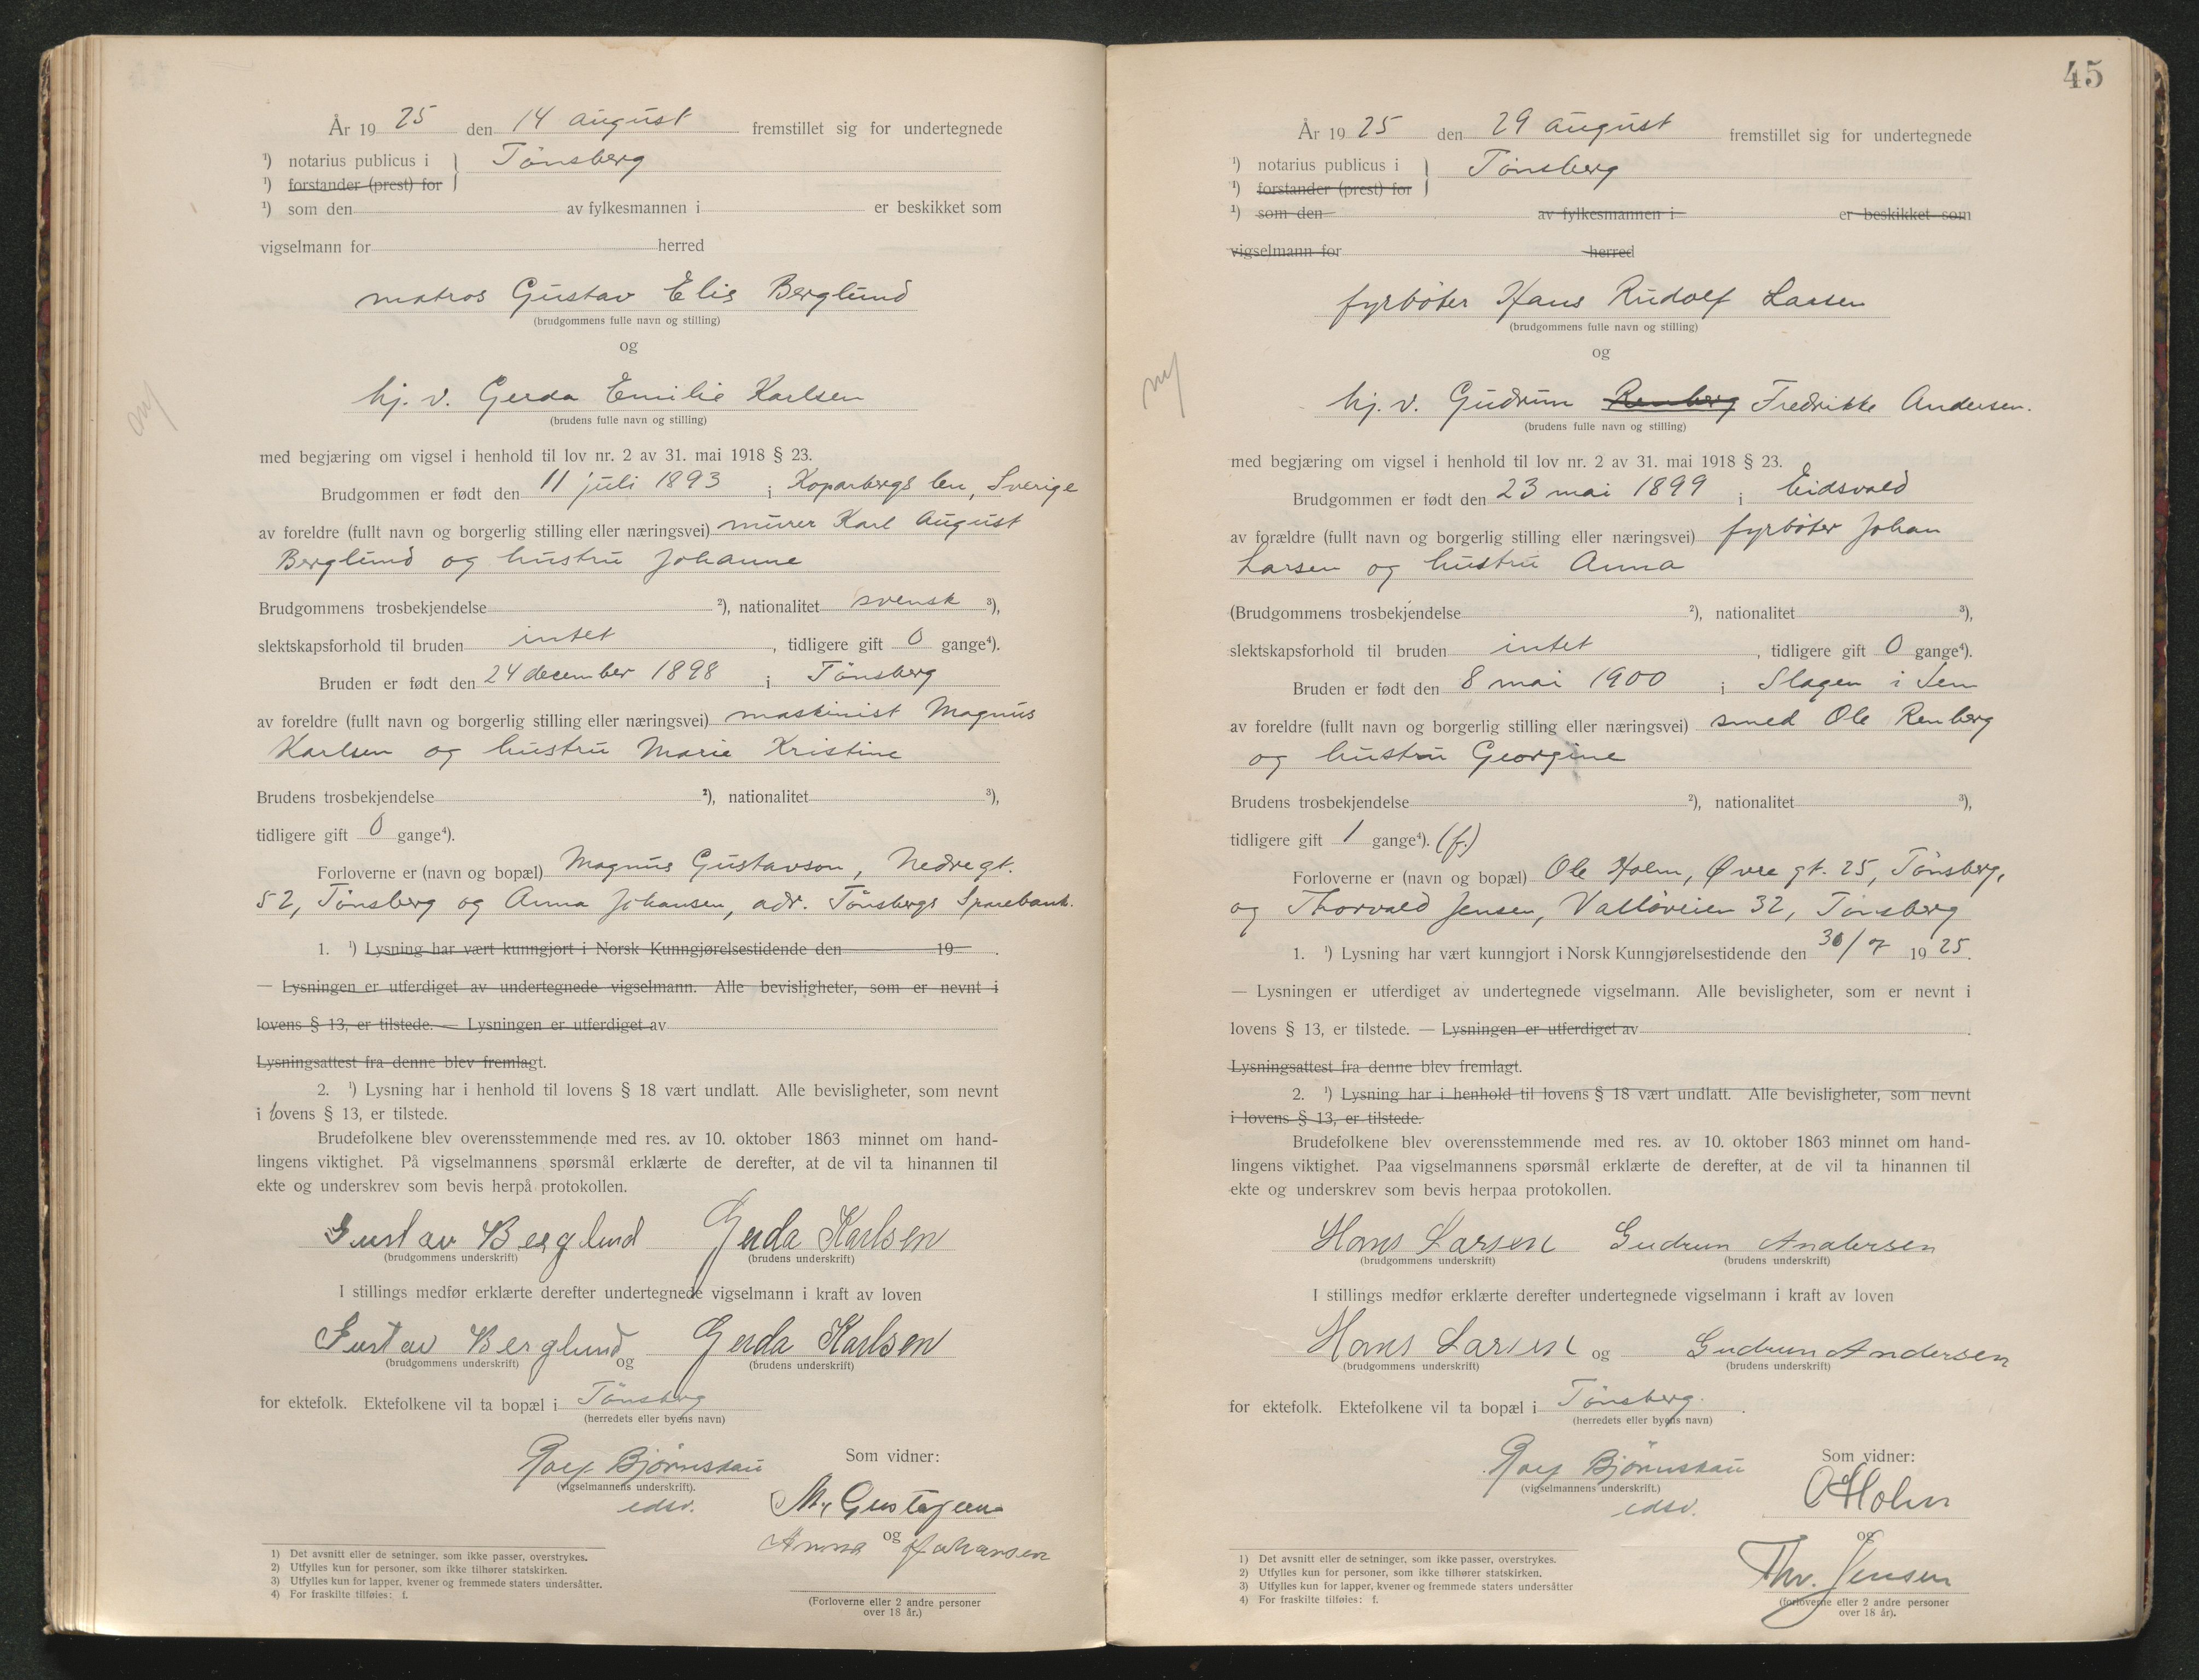 År 1925 den 14 august fremstillet sig for undertegnede
¹) notarius publicus i } Tönsberg
¹) forstander (prest) for
¹) som den av fylkesmannen i er beskikket som
vigselmann for herred
matros Gustav Elis Berglund
(brudgommens fulle navn og stilling)
og
hj. v. Gerda Emilie Karlsen
(brudens fulle navn og stilling)
med begjæring om vigsel i henhold til lov nr. 2 av 31. mai 1918 § 23.
Brudgommen er født den 11 juli 1893 i Koparbergs len, Sverige
av foreldre (fullt navn og borgerlig stilling eller næringsvei) murer Karl August
Berglund og hustru Johanne
Brudgommens trosbekjendelse ²), nationalitet svensk ³),
slektskapsforhold til bruden intet, tidligere gift 0 gange⁴).
Bruden er født den 24 december 1898 i Tönsberg
av foreldre (fullt navn og borgerlig stilling eller næringsvei) maskinist Magnus
Karlsen og hustru Marie Kristine
Brudens trosbekjendelse ²), nationalitet ³),
tidligere gift 0 gange⁴).
Forloverne er (navn og bopæl) Magnus Gustavson, Nedregt.
52, Tönsberg og Anna Johansen, adr. Tönsbergs Sparebank.
1. ¹) Lysning har vært kunngjort i Norsk Kunngjørelsestidende den 19 .
— Lysningen er utferdiget av undertegnede vigselmann. Alle bevisligheter, som er nevnt i
lovens § 13, er tilstede. — Lysningen er utferdiget av
Lysningsattest fra denne blev fremlagt.
2. ¹) Lysning har i henhold til lovens § 18 vært undlatt. Alle bevisligheter, som nevnt
i lovens § 13, er tilstede.
Brudefolkene blev overensstemmende med res. av 10. oktober 1863 minnet om hand-
lingens viktighet. På vigselmannens spørsmål erklærte de derefter, at de vil ta hinannen til
ekte og underskrev som bevis herpå protokollen.
Gustav Berglund Gerda Karlsen
(brudgommens underskrift) (brudens underskrift)
I stillings medfør erklærte derefter undertegnede vigselmann i kraft av loven
Gustav Berglund og Gerda Karlsen
(brudgommens underskrift) (brudens underskrift)
for ektefolk. Ektefolkene vil ta bopæl i Tönsberg
(herredets eller byens navn)
Rolf Bjørnskau
(vigselmannens underskrift).
edsv.
Som vidner:
M. Gustafsen
og
Anna Johansen
(Forloverne eller 2 andre personer
over 18 år.)
1) Det avsnitt eller de setninger, som ikke passer, overstrykes.
2) Utfylles kun for personer, som ikke tilhører statskirken.
3) Utfylles kun for lapper, kvener og fremmede staters undersåtter.
4) For fraskilte tilføies: f.
45
År 1925 den 29 august fremstillet sig for undertegnede
¹) notarius publicus i } Tönsberg
¹) forstander (prest) for
¹) som den av fylkesmannen i er beskikket som
vigselmann for herred
fyrböter Hans Rudolf Larsen
(brudgommens fulle navn og stilling)
og
hj. v. Gudrun Renberg Fredrikke Andersen.
(brudens fulle navn og stilling)
med begjæring om vigsel i henhold til lov nr. 2 av 31. mai 1918 § 23.
Brudgommen er født den 23 mai 1899 i Eidsvold
av forældre (fullt navn og borgerlig stilling eller næringsvei) fyrböter Johan
Larsen og hustru Anna
(Brudgommens trosbekjendelse ²), nationalitet ³),
slektskapsforhold til bruden intet, tidligere gift 0 gange⁴).
Bruden er født den 8 mai 1900 i Slagen i Sem
av foreldre (fullt navn og borgerlig stilling eller næringsvei) smed Ole Renberg
og hustru Georgine
Brudens trosbekjendelse ²), nationalitet ³),
tidligere gift 1 gange⁴). (f.)
Forloverne er (navn og bopæl) Ole Holm, Øvre gt. 25, Tönsberg,
og Thorvald Jensen, Vallöveien 32, Tönsberg
1. ¹) Lysning har vært kunngjort i Norsk Kunngjørelsestidende den 30/7 1925.
— Lysningen er utferdiget av undertegnede vigselmann. Alle bevisligheter, som er nevnt i
lovens § 13, er tilstede. — Lysningen er utferdiget av .
Lysningsattest fra denne blev fremlagt.
2. ¹) Lysning har i henhold til lovens § 18 vært undlatt. Alle bevisligheter, som nevnt
i lovens § 13, er tilstede.
Brudefolkene blev overensstemmende med res. av 10. oktober 1863 minnet om hand-
lingens viktighet. Paa vigselmannens spørsmål erklærte de derefter, at de vil ta hinannen til
ekte og underskrev som bevis herpaa protokollen.
Hans Larsen Gudrun Andersen
(brudgommens underskrift) (brudens underskrift)
I stillings medfør erklærte derefter undertegnede vigselmann i kraft av loven
Hans Larsen og Gudrun Andersen
(brudgommens underskrift) (brudens underskrift)
for ektefolk. Ektefolkene vil ta bopæl i Tönsberg.
(herredets eller byens navn)
Rolf Bjørnskau
(vigselmannens underskrift.)
edsv.
Som vidner:
O Holm
og
Thv. Jensen
(forloverne eller 2 andre personer
over 18 år).
1) Det avsnitt eller de setninger, som ikke passer, overstrykes.
2) Utfylles kun for personer, som ikke tilhører statskirken.
3) Utfylles kun for lapper, kvener og fremmede staters undersåtter
4) For fraskilte tilføies: f.